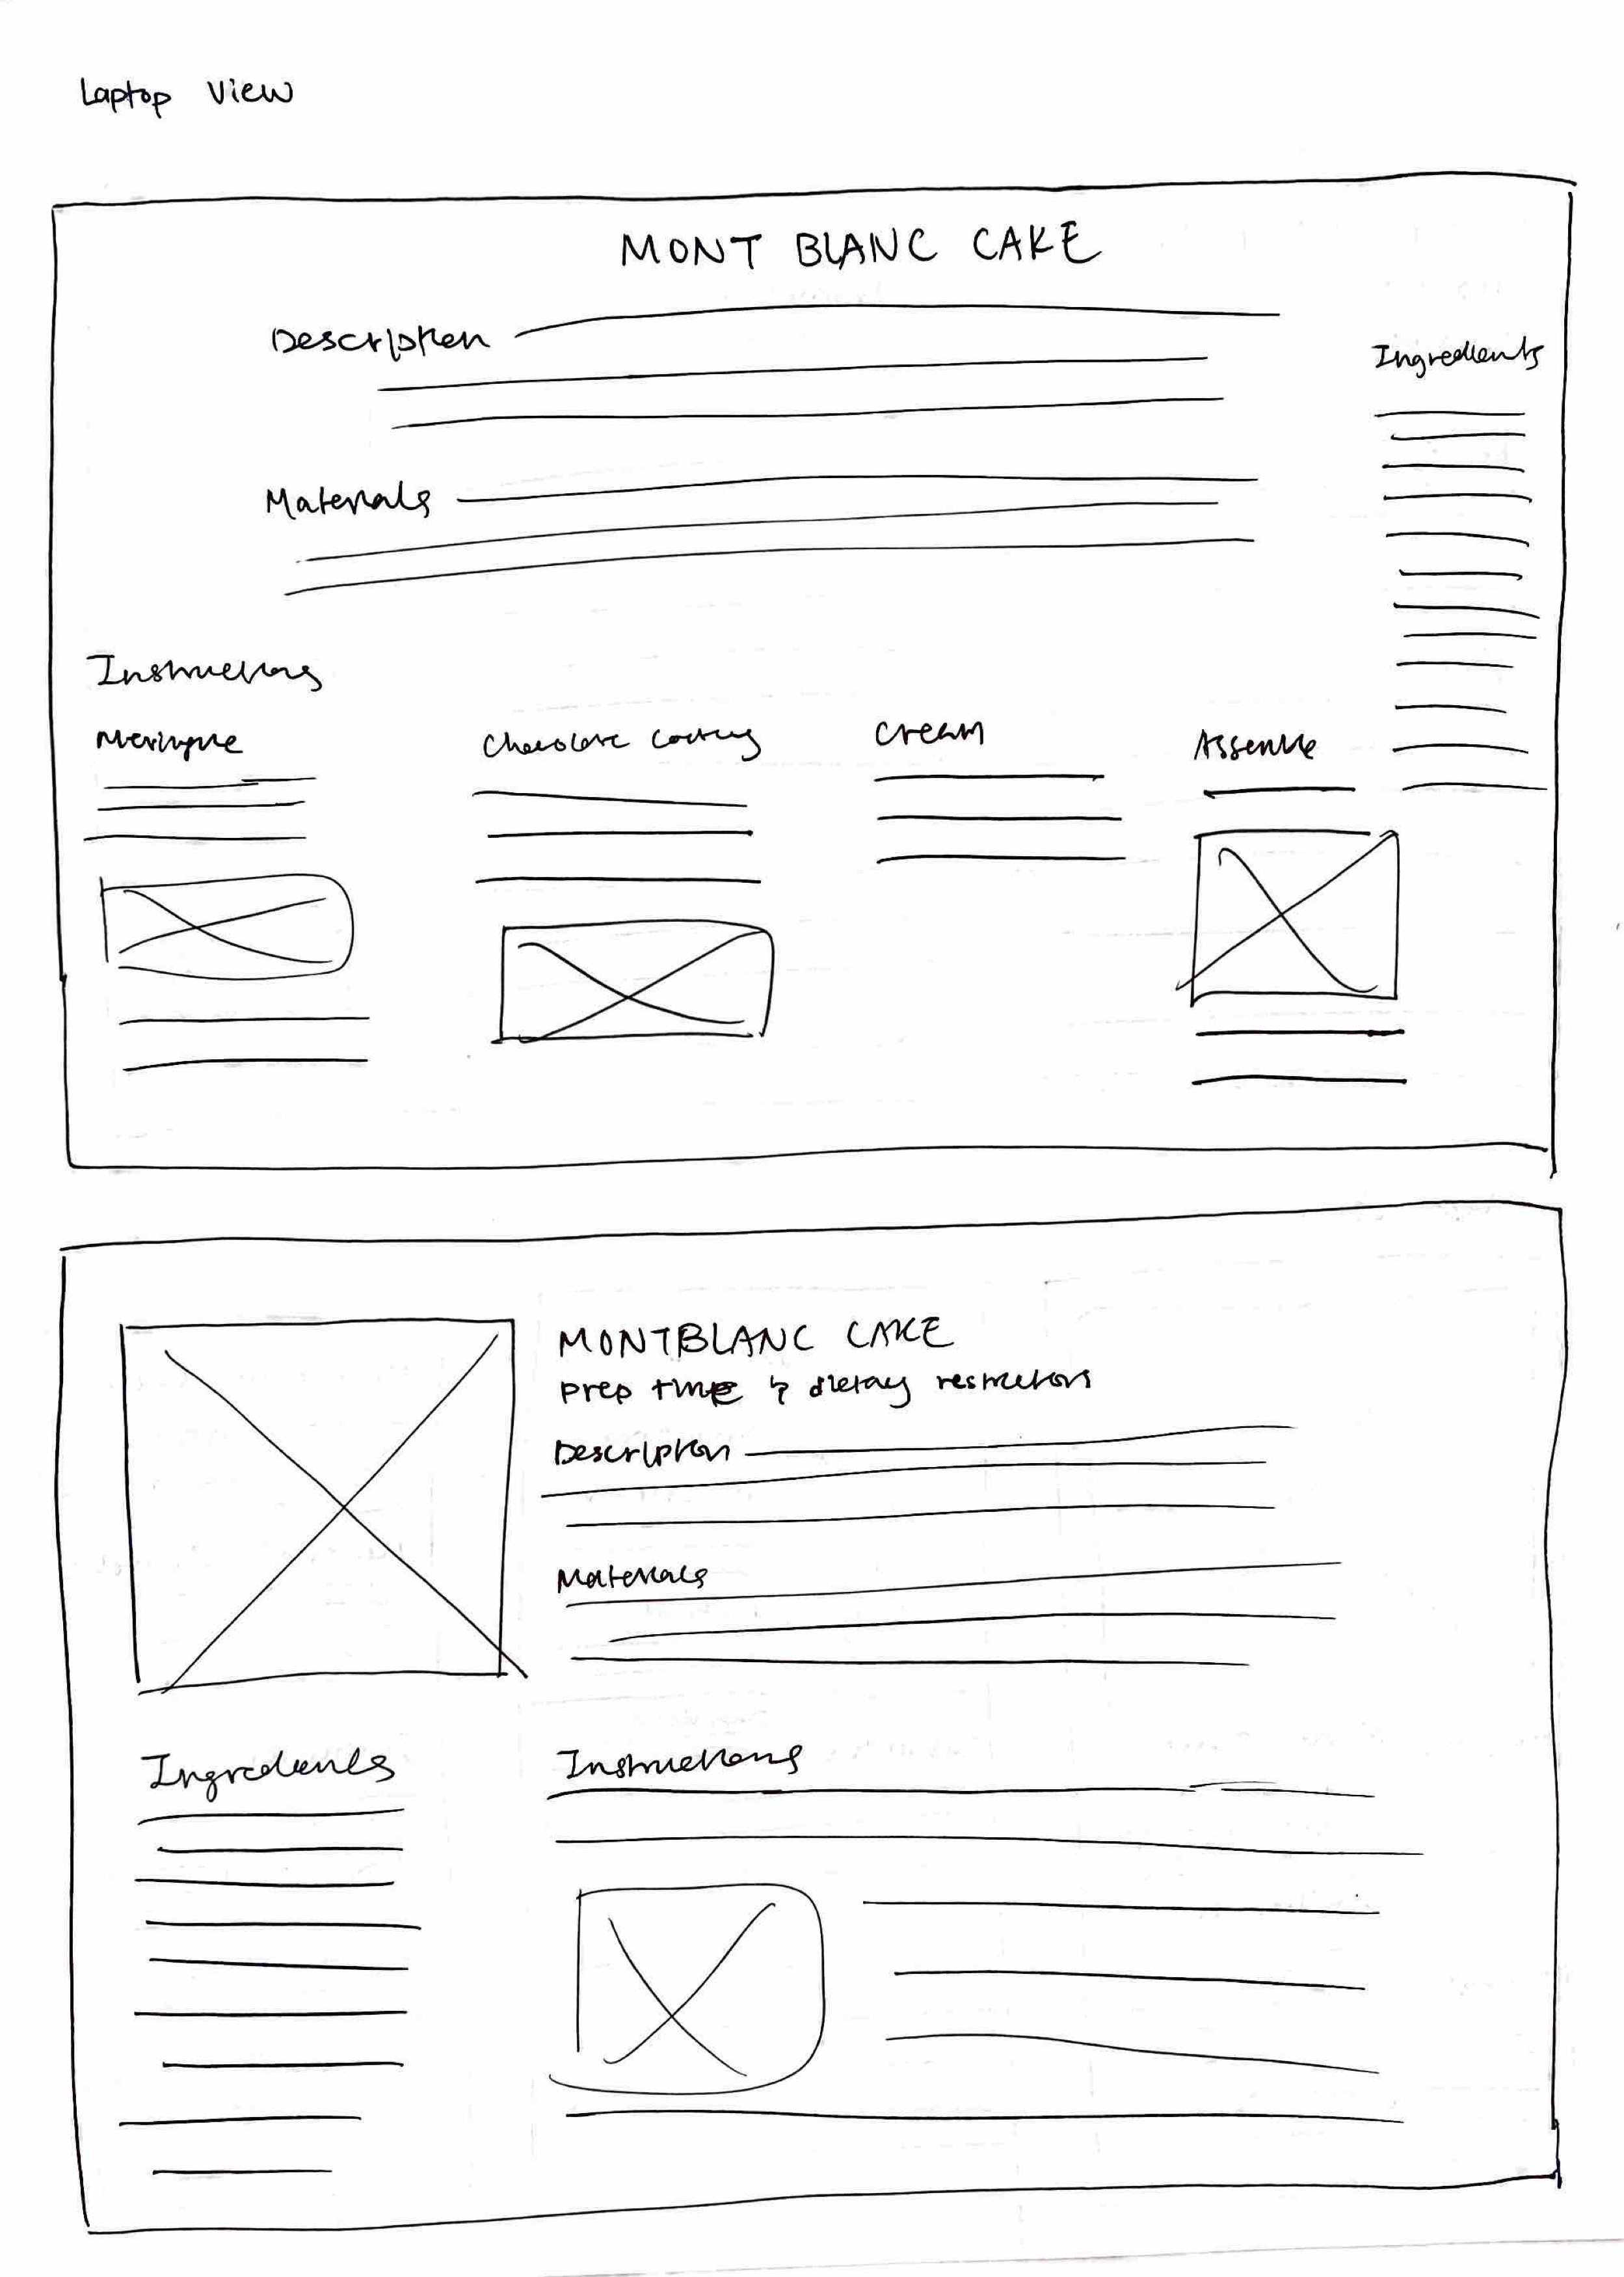 Laptop View
MONT BLANC CAKE
Description
Ingredients
Materials
Instructions
Meringue
Chocolate Coating
Cream
Assemble
MONTBLANC CAKE
prep time & dietary restrictions
Description
Materials
Ingredients
Instructions